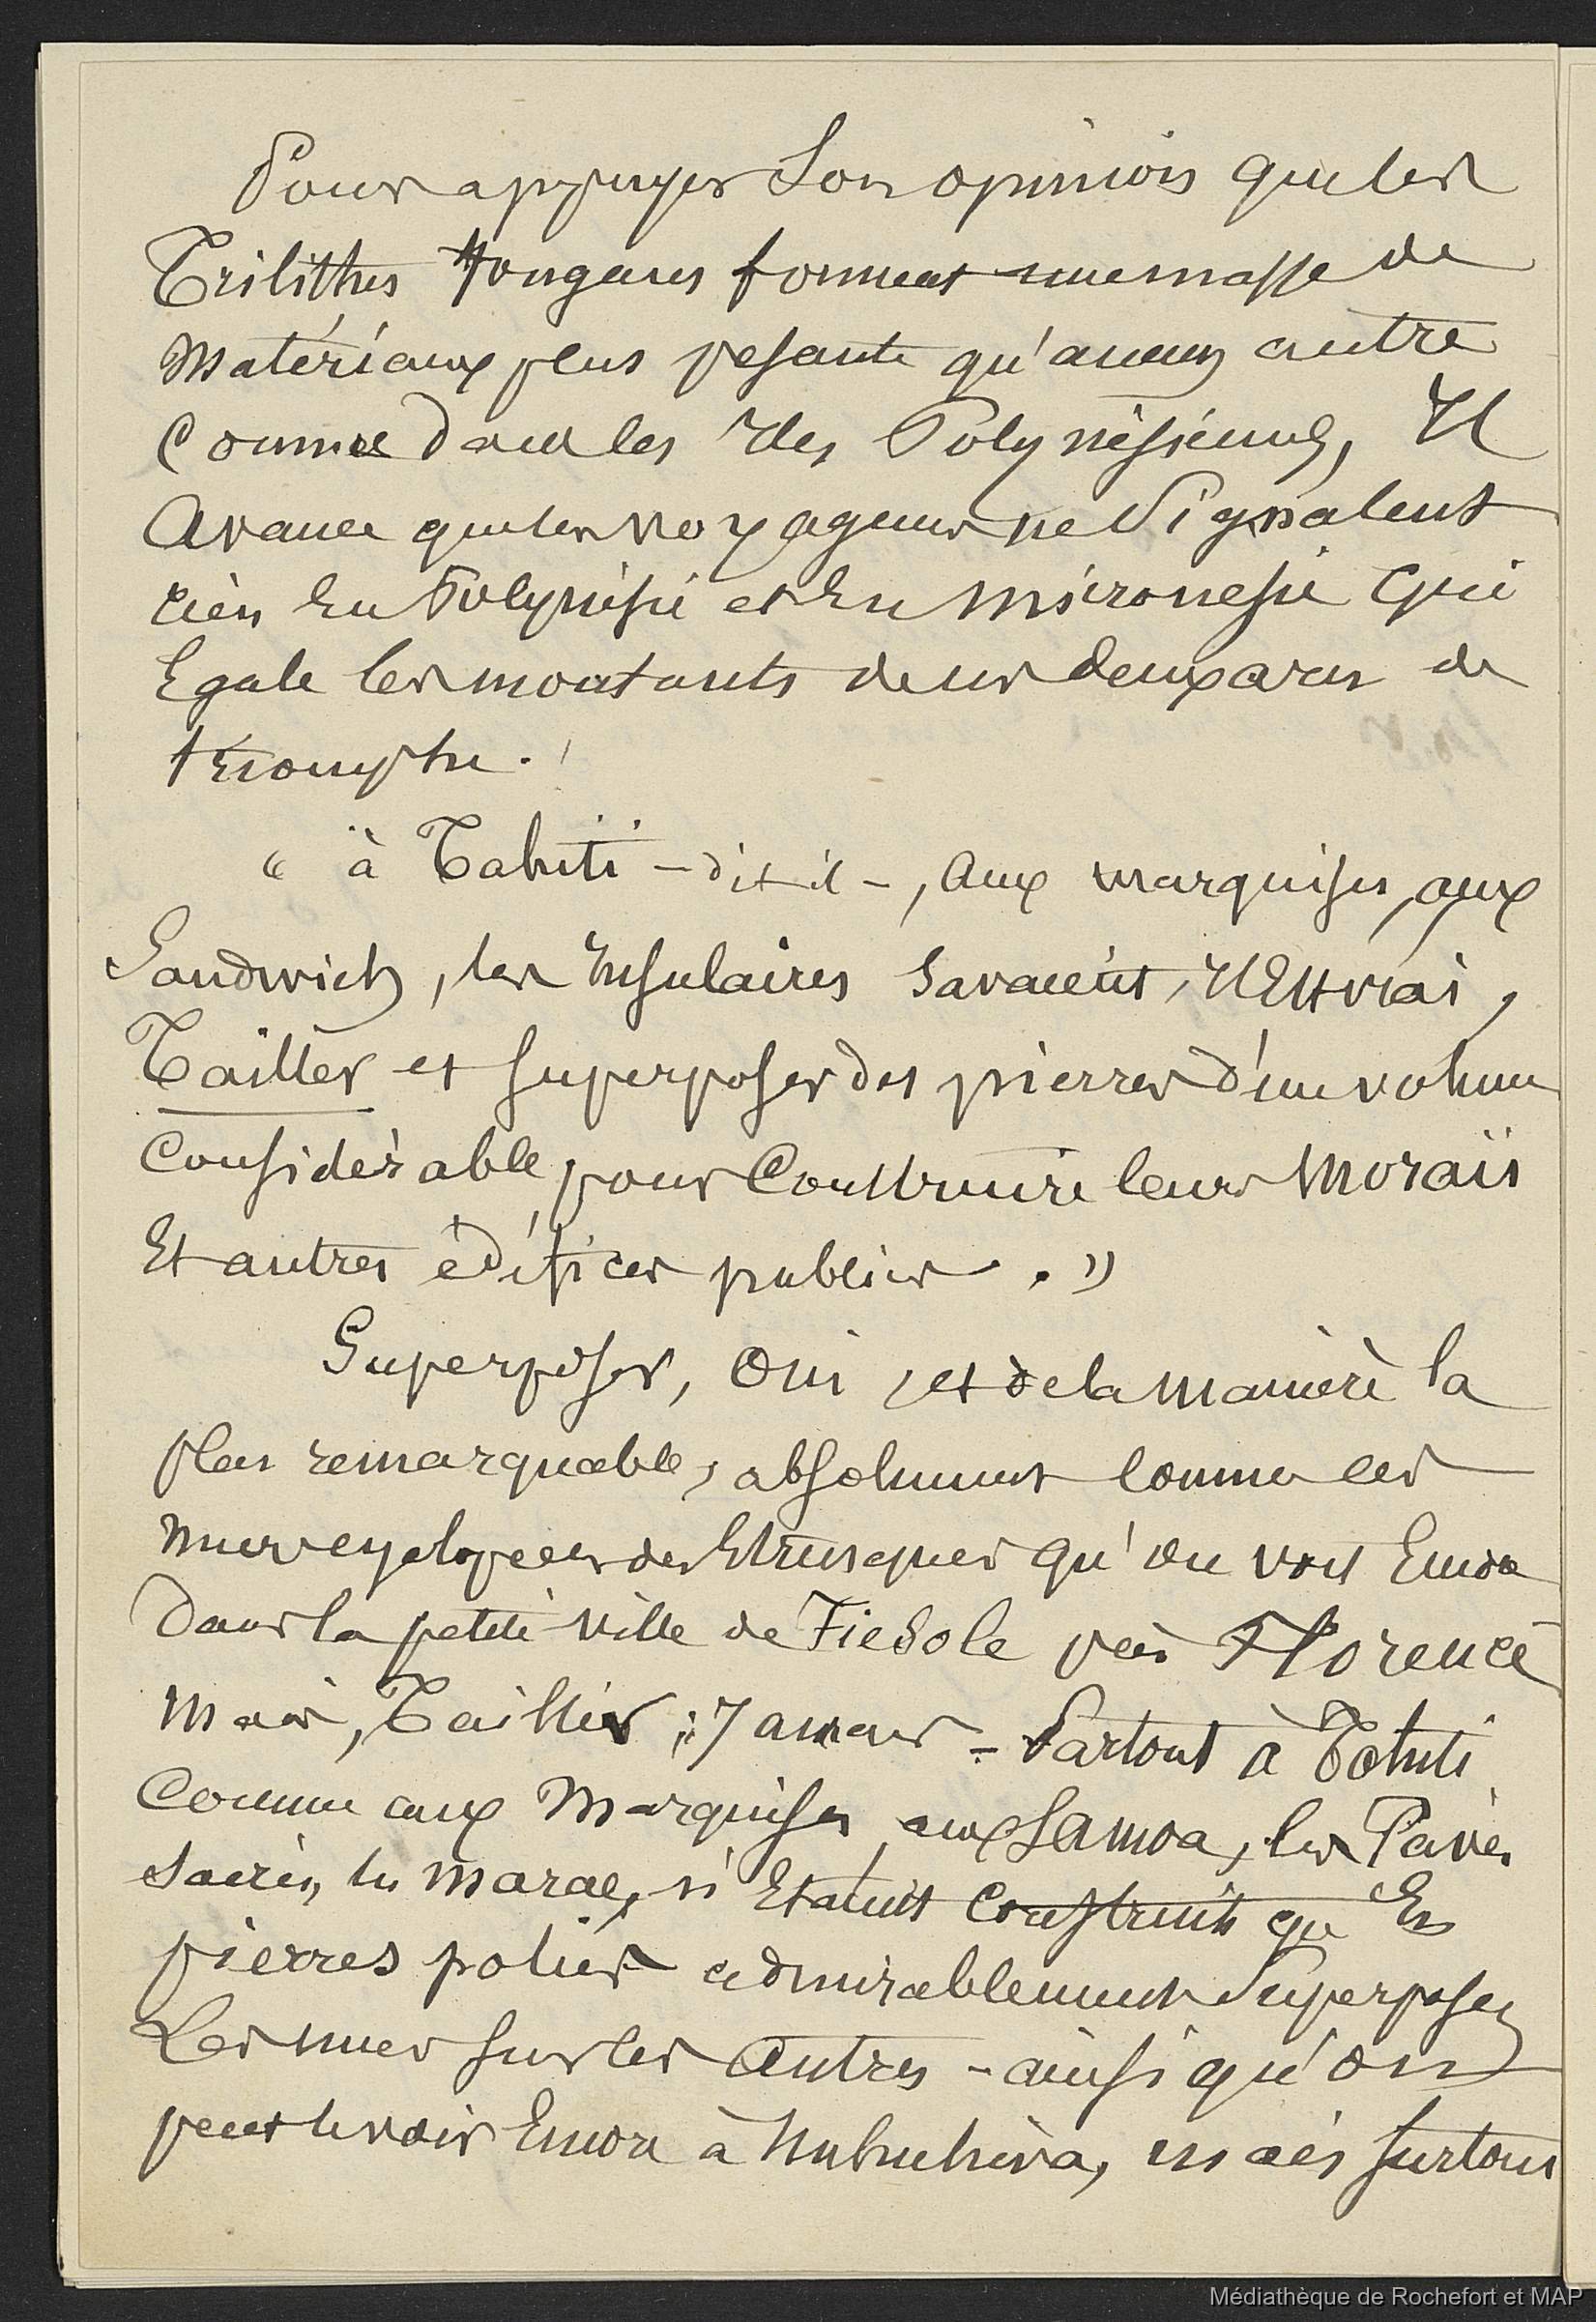 Pour appuyer Son opinion que les
Trilithes tongans forment une masse de
Matériaux plus pesante qu'aucun autre
Connue dans les Iles Polynésiennes, Il
Avance que les voyageurs ne Signalent
rien En Polynésie et En Micronesie Qui
Egale les montants de ces deux arcs de
triomphe.
" à Tahiti – dit-il –, Aux marquises, aux
Sandwich, les Insulaires Savaient, Il Est vrai,
Tailler et superposer des pierres d'un volume
Considérable, pour Construire leurs Moraïs
Et autres édifices publics. "
Superposer, Oui, et de la manière la
plus remarquable, absolument comme les
Murs cyclopéens des Etrusques qu'on voit Encor
Dans la petite ville de Fiesole près Florence
Mais, Tailler ; Jamais – Partout à Tahiti
Comme aux Marquises, aux Samoa, les Pavés
sacrés, les marae, n'Etaient Construits qu'En
pierres polies admirablement Superposées
Les unes sur les Autres – ainsi qu'on
peut le voir Encor à Nuhuhiva, mais surtout
Médiathèque de Rochefort et MAP